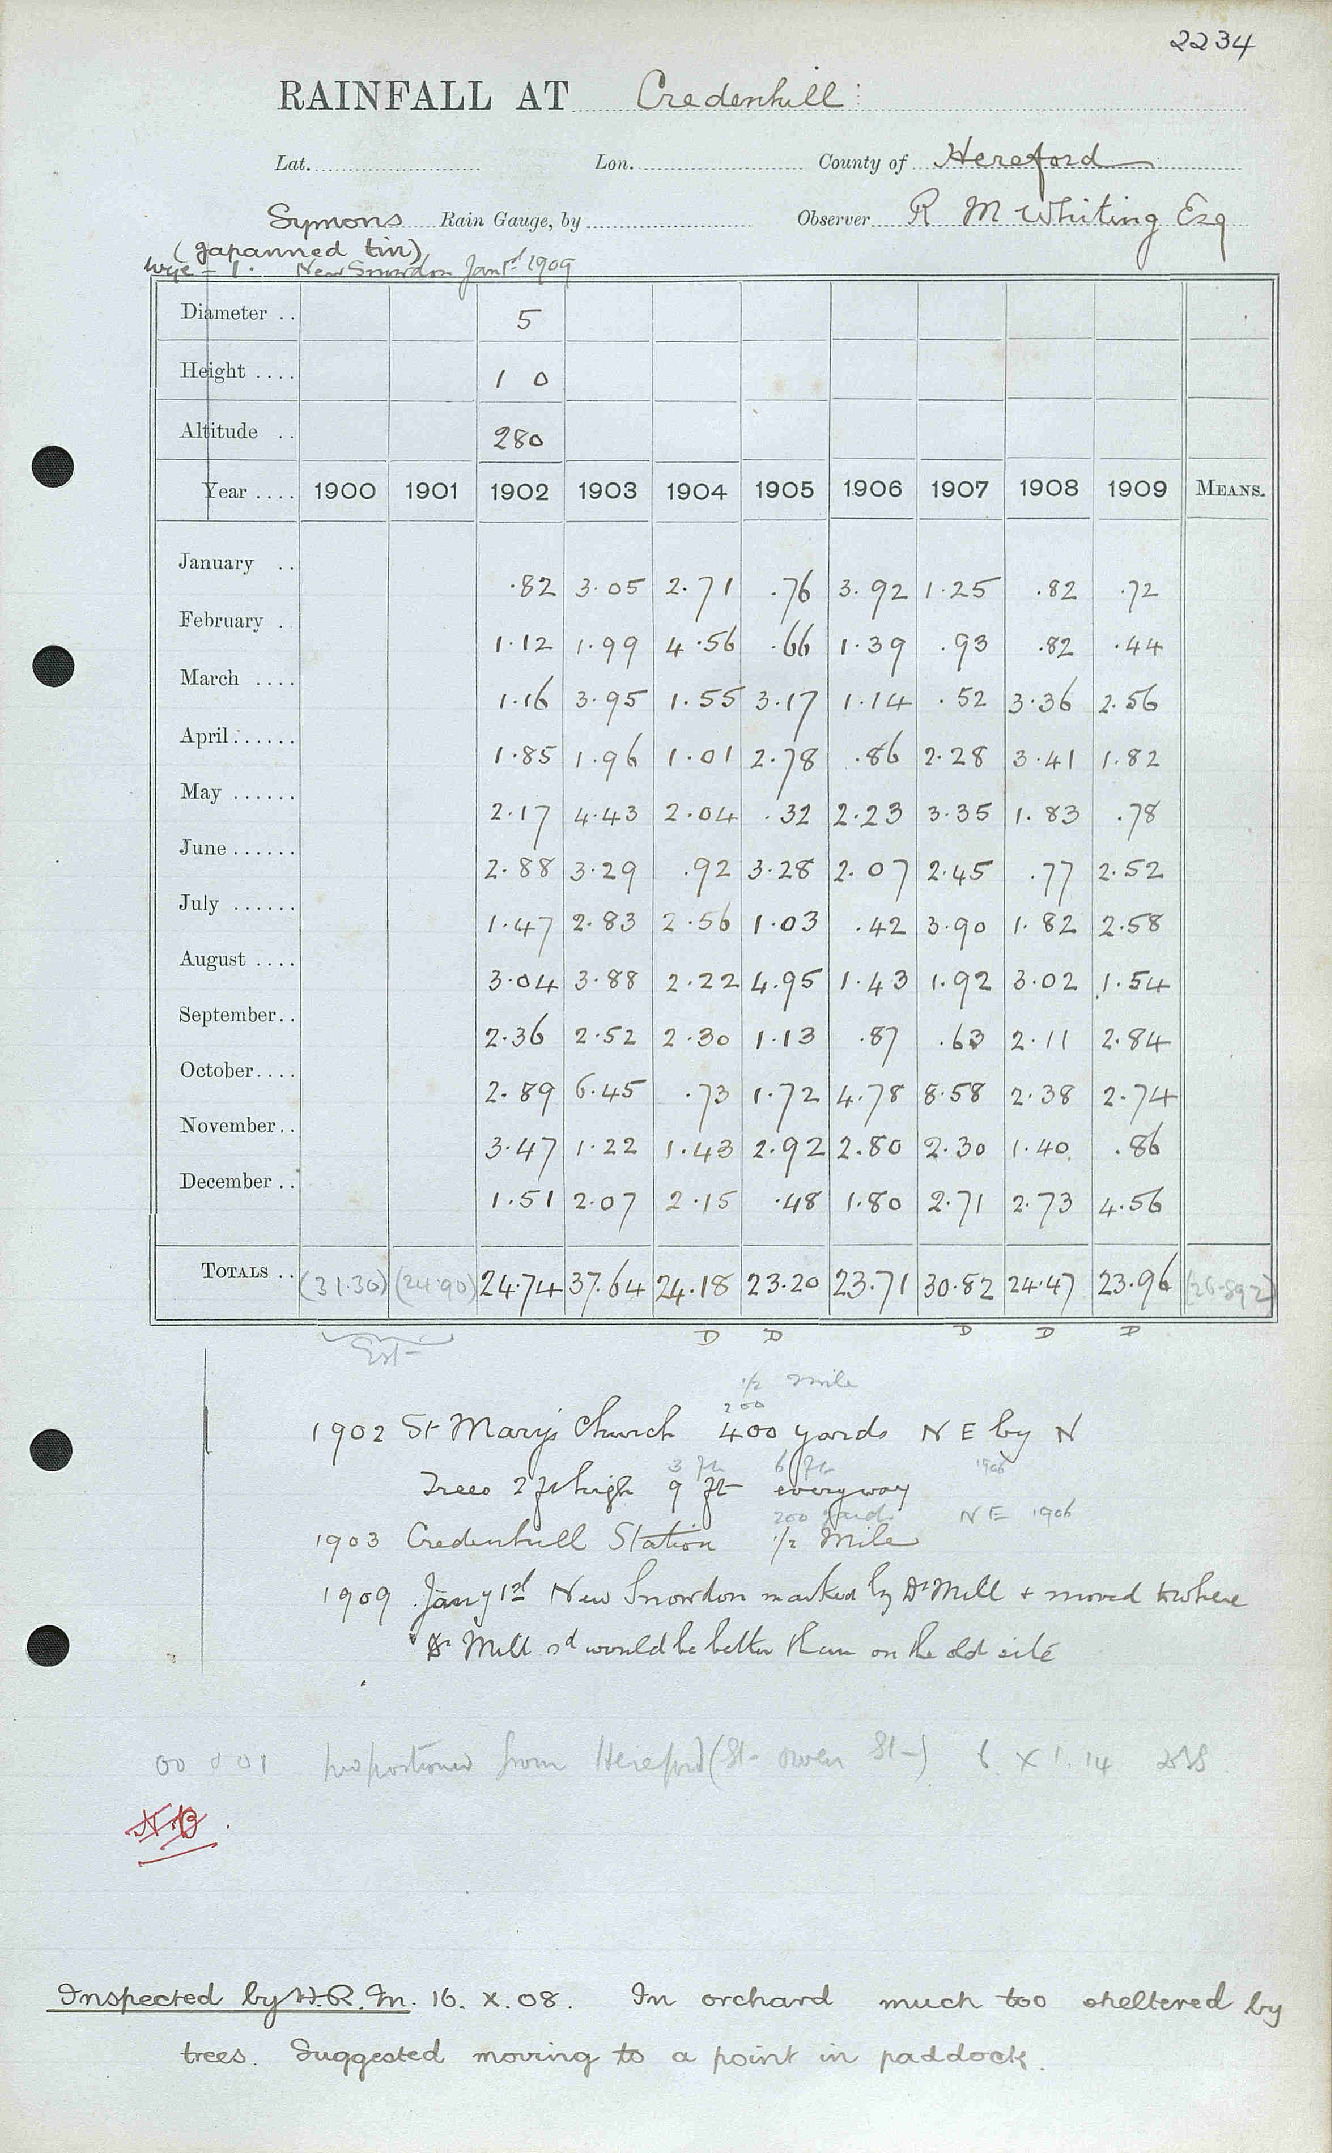 2234
RAINFALL AT Credenhill
Lat. Lon. County of Hereford
Symons Rain Gauge, by Observer R M Whiting Esq
(japanned tin)
Wye - 1. New Snowdon Jan 1st 1909
Diameter .. 5
Height .... 1 0
Altitude .. 280
Year .... 1900 1901 1902 1903 1904 1905 1906 1907 1908 1909 MEANS.
January .. .82 3.05 2.71 .76 3.92 1.25 .82 .72
February . 1.12 1.99 4.56 .66 1.39 .93 .82 .44
March .... 1.16 3.95 1.55 3.17 1.14 .52 3.36 2.56
April ...... 1.85 1.96 1.01 2.78 .86 2.28 3.41 1.82
May ...... 2.17 4.43 2.04 .32 2.23 3.35 1.83 .78
June ...... 2.88 3.29 .92 3.28 2.07 2.45 .77 2.52
July ...... 1.47 2.83 2.56 1.03 .42 3.90 1.82 2.58
August .... 3.04 3.88 2.22 4.95 1.43 1.92 3.02 1.54
September.. 2.36 2.52 2.30 1.13 .87 .63 2.11 2.84
October.... 2.89 6.45 .73 1.72 4.78 8.58 2.38 2.74
November.. 3.47 1.22 1.43 2.92 2.80 2.30 1.40 .86
December .. 1.51 2.07 2.15 .48 1.80 2.71 2.73 4.56
TOTALS .. (31.30) (24.90) 24.74 37.64 24.18 23.20 23.71 30.82 24.47 23.96 (26.892)
D D D D D
Est
1/2 mile
200
1902 St Mary's Church 400 yards N E by N
3 ft 6 ft 1906
Trees 2 ft high 9 ft everyway
200 yards NE 1906
1903 Credenhill Station 1/2 Mile
1909 Jany 1st New Snowdon marked by Dr Mill + moved to where
Dr Mill sd would be better than on the old site
00 & 01 proportioned from Hereford (St Owen St) 6 X 1.14
Inspected by H.R.M. 16. X. 08. In orchard much too sheltered by
trees. Suggested moving to a point in paddock.